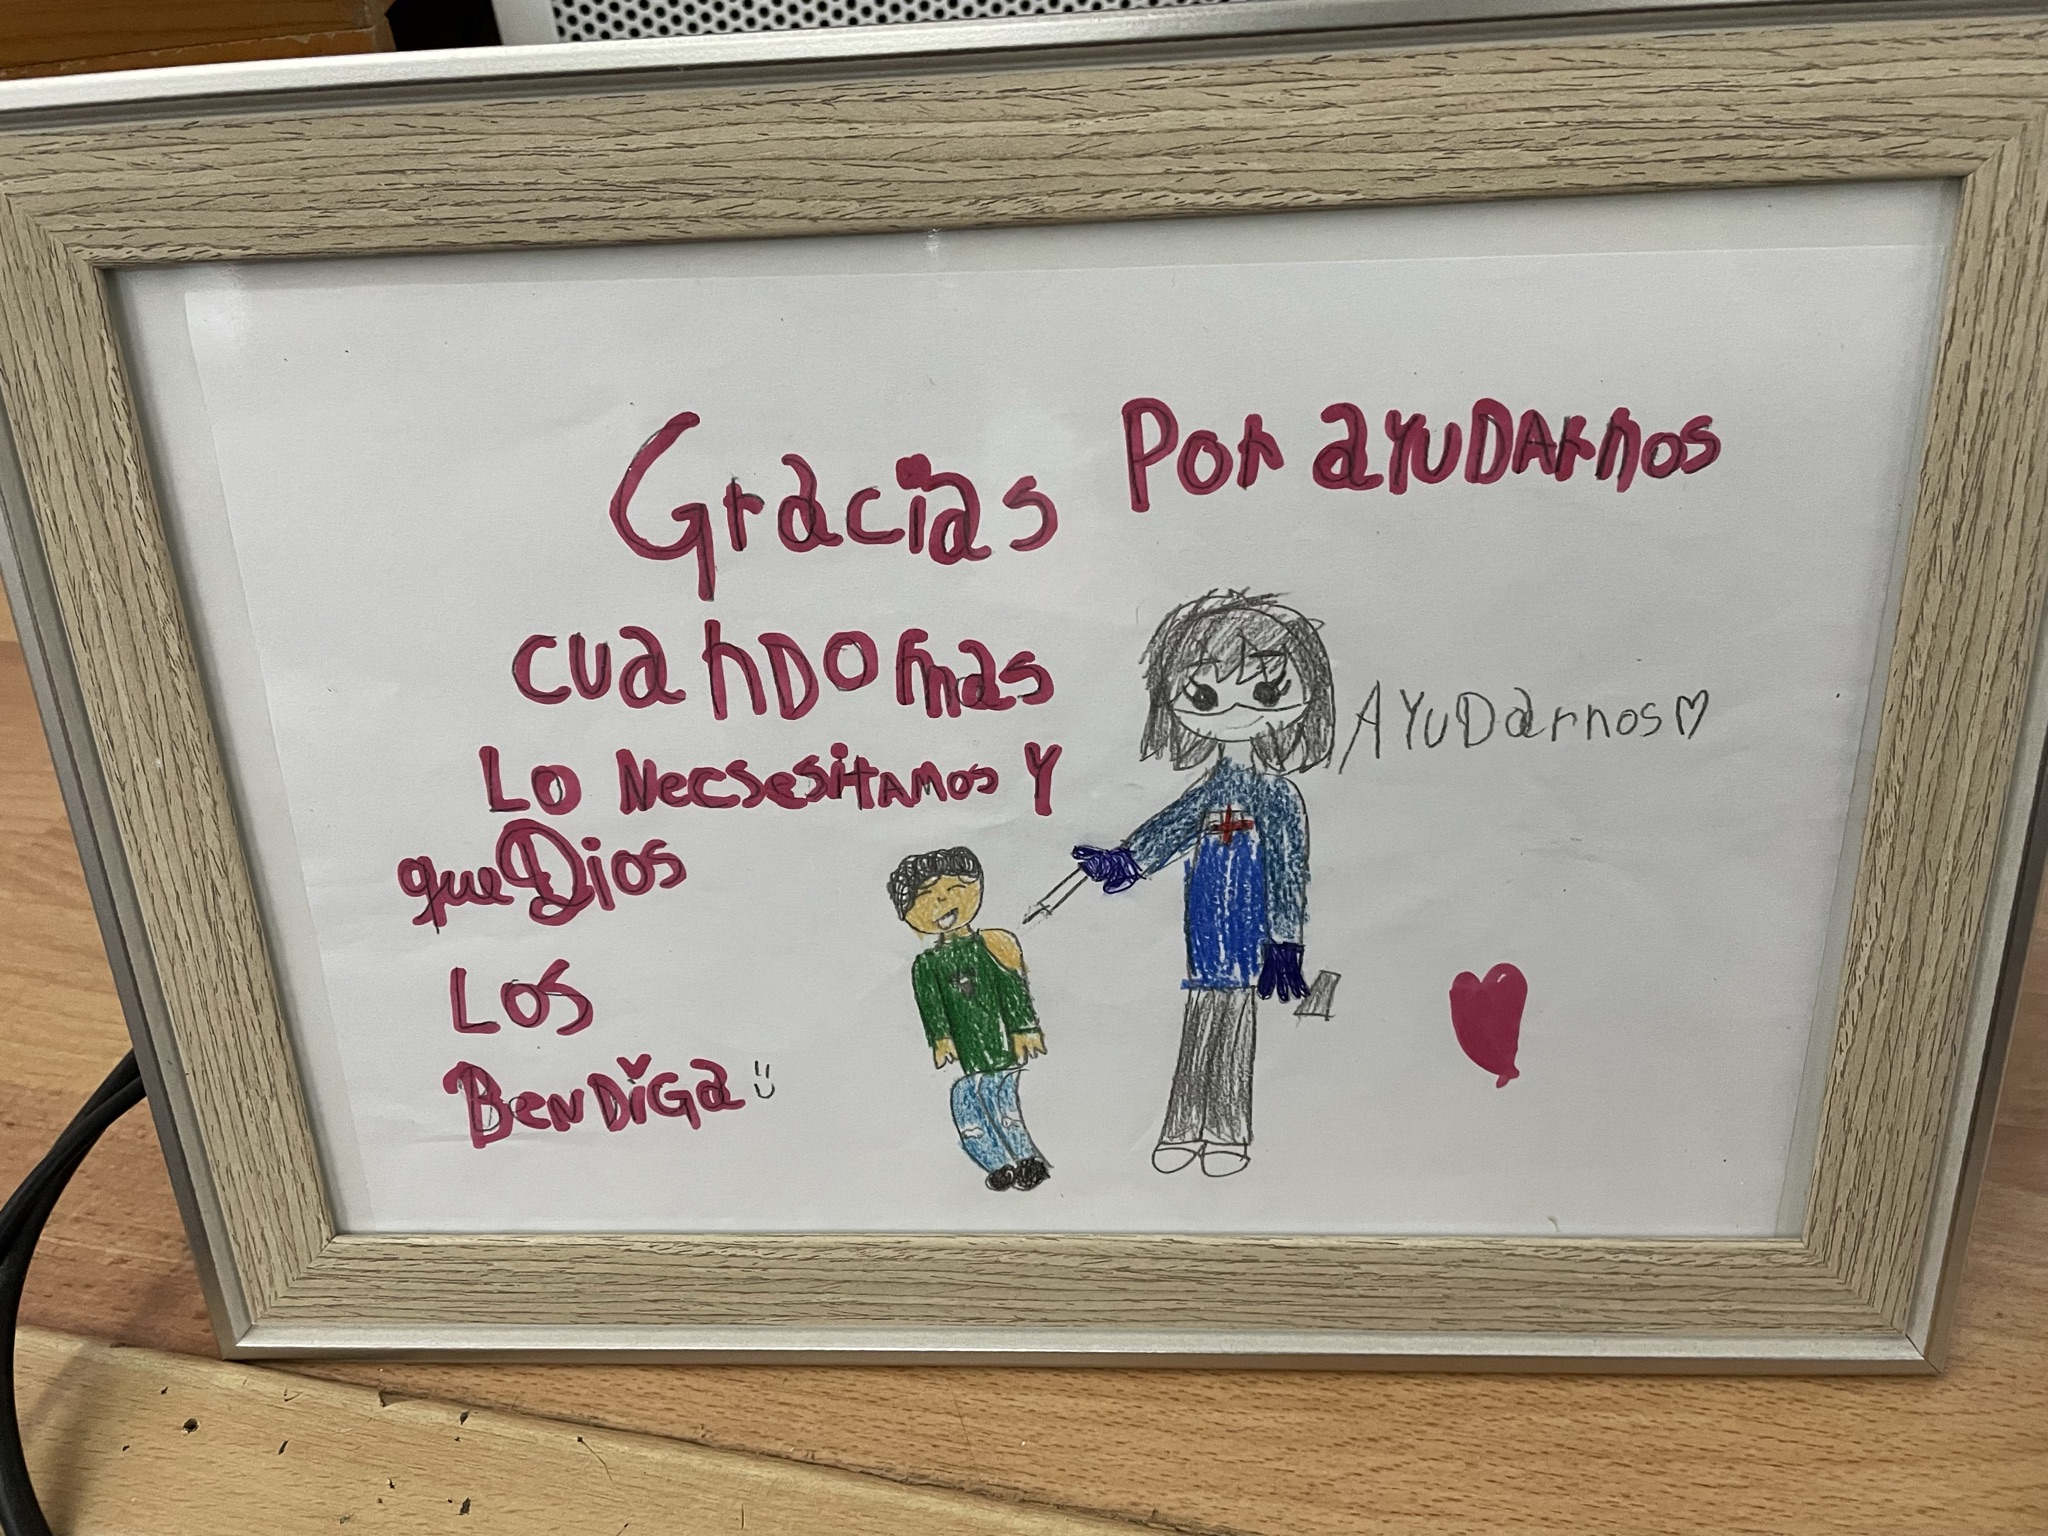 Gracias Por ayuDArnos
cuanDo mas
Lo Necsesitamos Y
que Dios
Los
BenDiGa
AYuDarnos